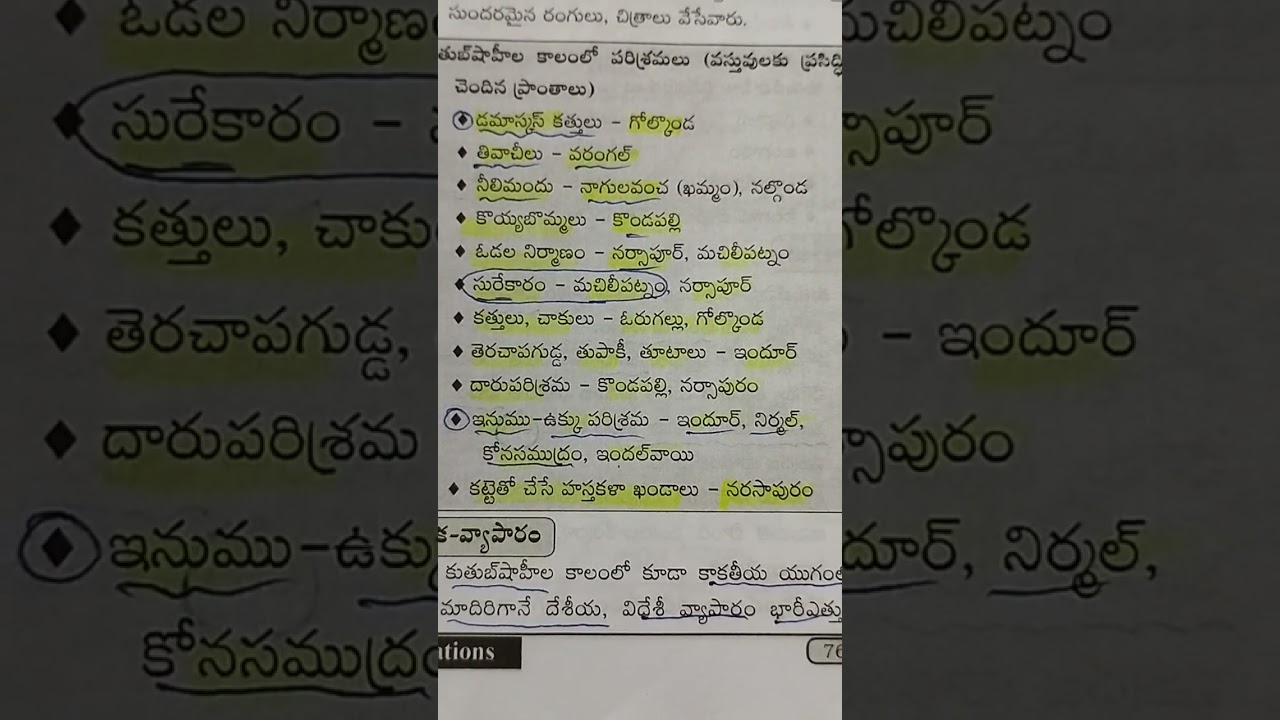 సుందరమైన రంగులు, చిత్రాలు వేసేవారు.
తుబ్‌షాహీల కాలంలో పరిశ్రమలు (వస్తువులకు ప్రసిద్ధి
చెందిన ప్రాంతాలు)
♦ డమాస్కస్ కత్తులు - గోల్కొండ
♦ తివాచీలు - వరంగల్
♦ నీలిమందు - నాగులవంచ (ఖమ్మం), నల్గొండ
♦ కొయ్యబొమ్మలు - కొండపల్లి
♦ ఓడల నిర్మాణం - నర్సాపూర్, మచిలీపట్నం
♦ సురేకారం - మచిలీపట్నం, నర్సాపూర్
♦ కత్తులు, చాకులు - ఓరుగల్లు, గోల్కొండ
♦ తెరచాపగుడ్డ, తుపాకీ, తూటాలు - ఇందూర్
♦ దారుపరిశ్రమ - కొండపల్లి, నర్సాపురం
♦ ఇనుము-ఉక్కు పరిశ్రమ - ఇందూర్, నిర్మల్,
కోనసముద్రం, ఇందల్‌వాయి
♦ కట్టెతో చేసే హస్తకళా ఖండాలు - నరసాపురం
క-వ్యాపారం
కుతుబ్‌షాహీల కాలంలో కూడా కాకతీయ యుగంల
మాదిరిగానే దేశీయ, విదేశీ వ్యాపారం భారీఎత్తు
ations
76